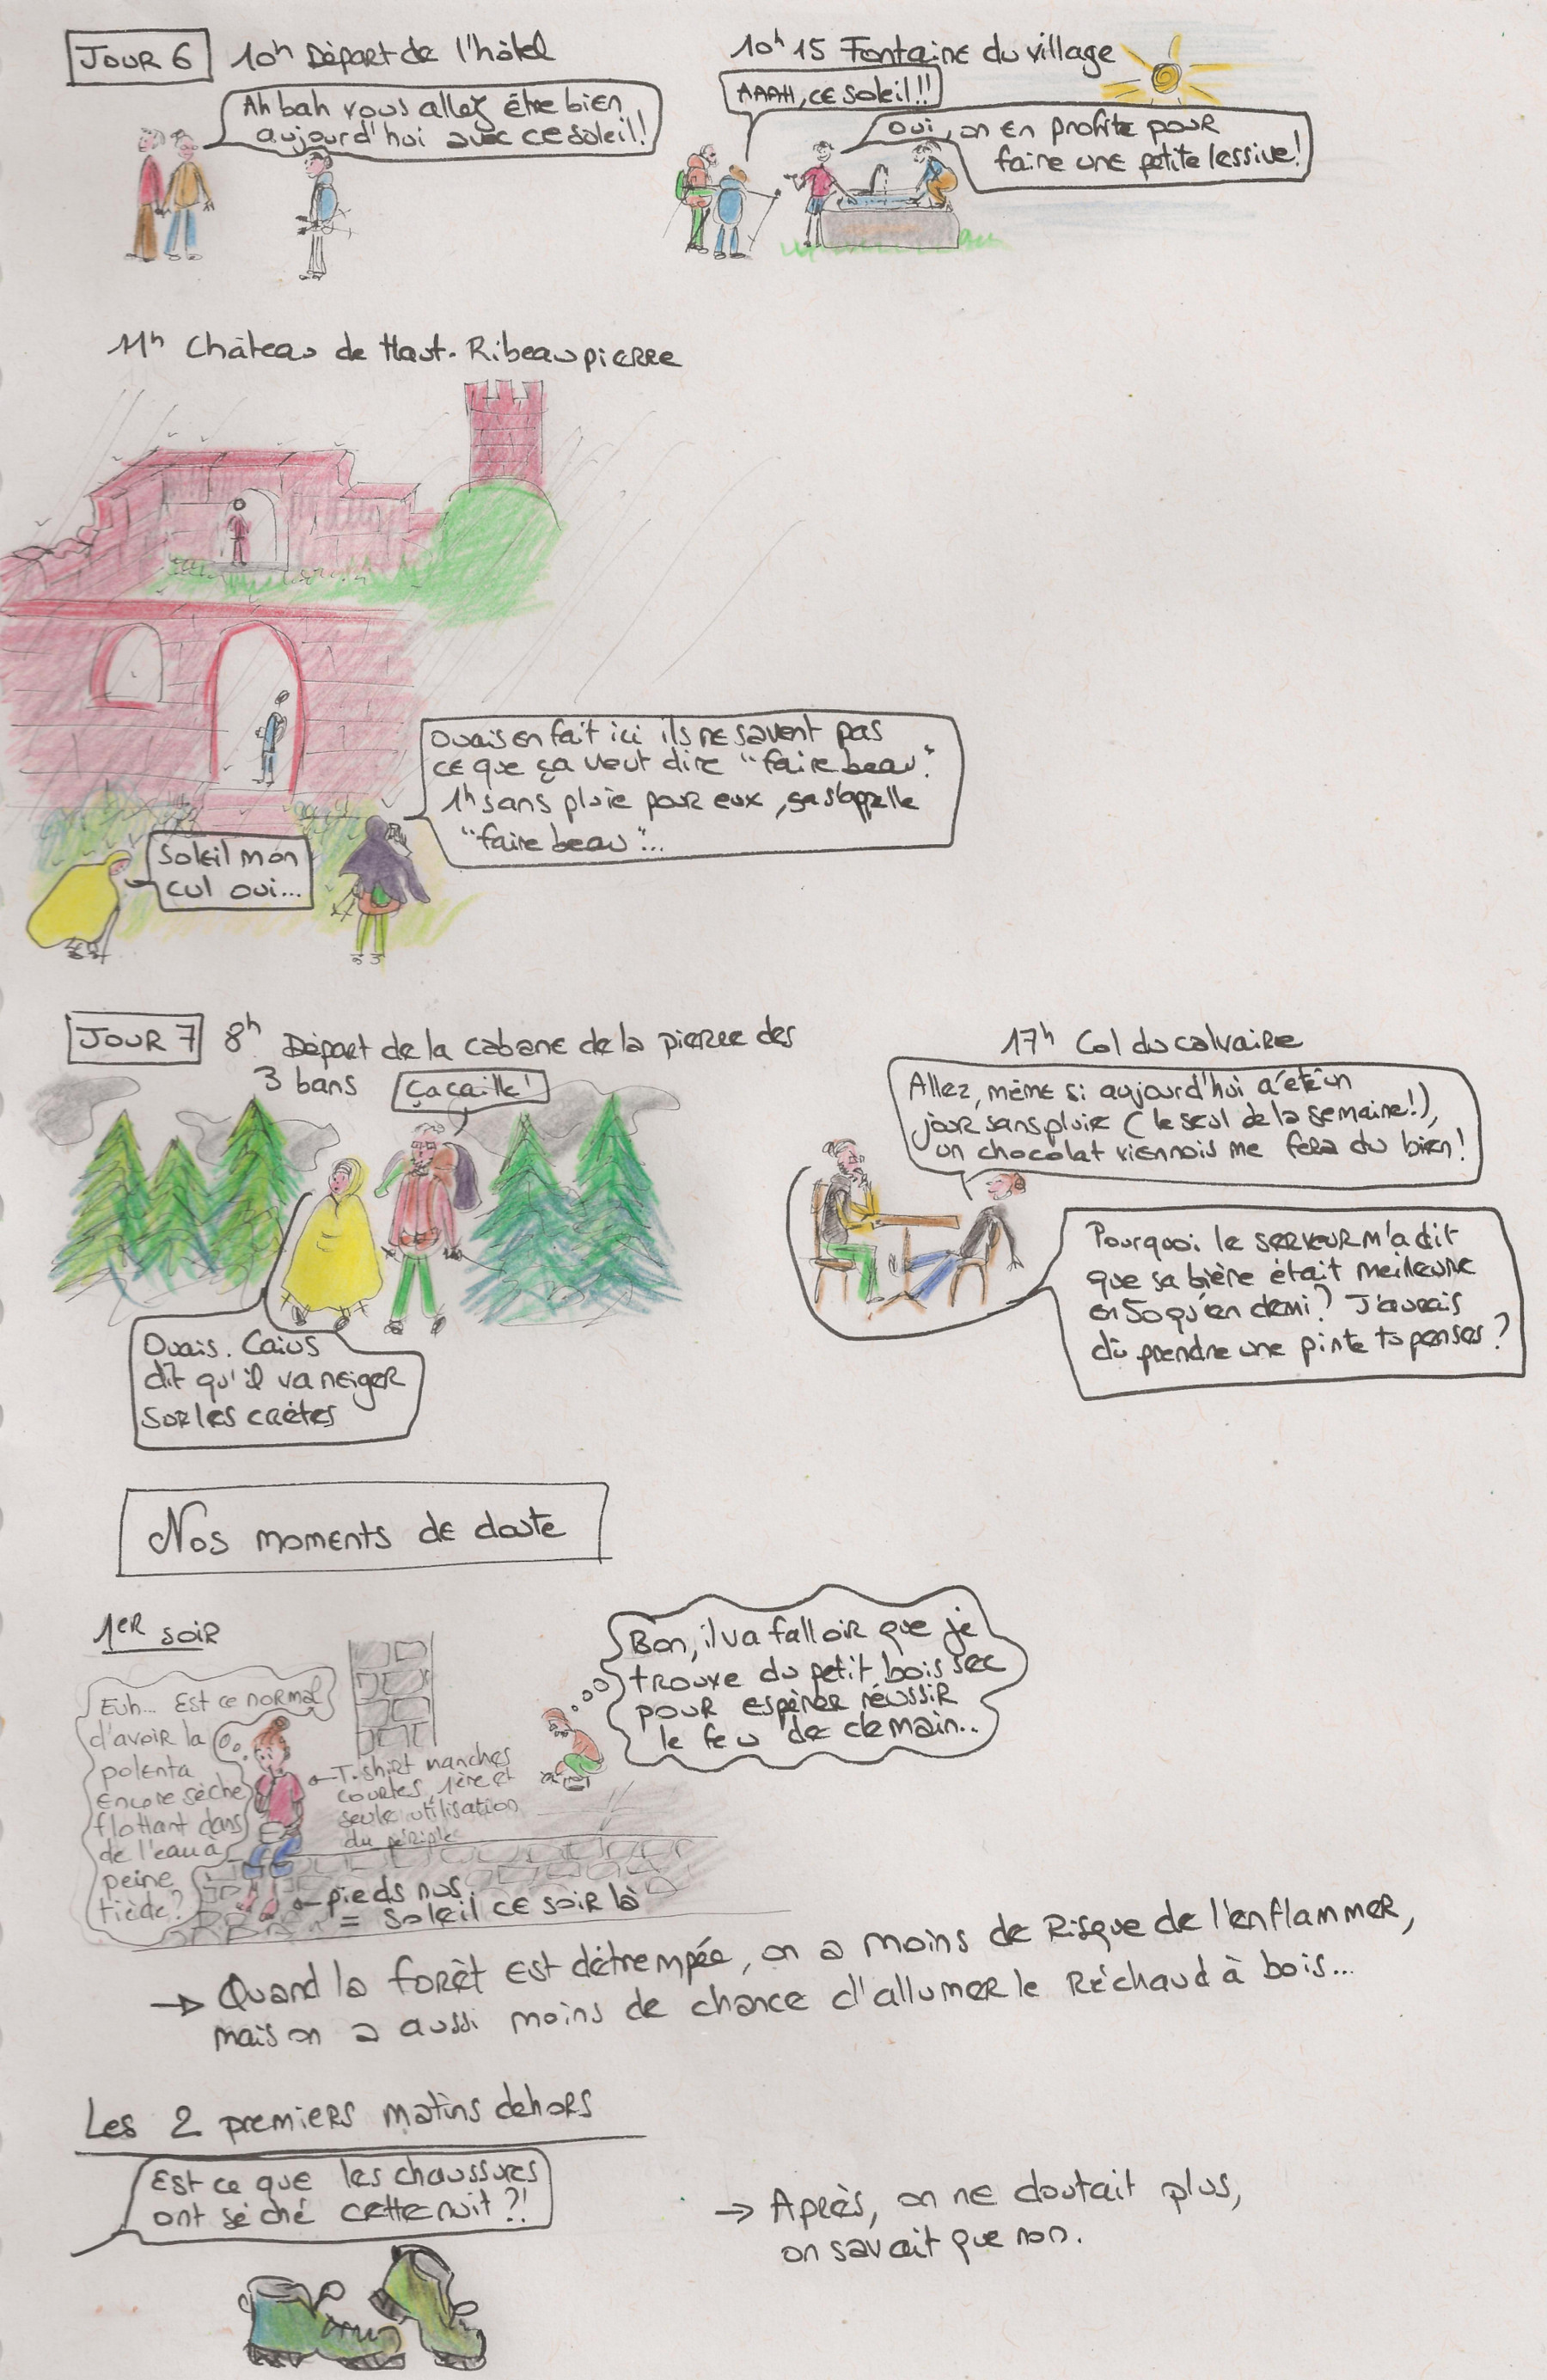 JOUR 6
10h Départ de l'hôtel
Ah bah vous allez être bien
aujourd'hui avec ce soleil!
10h15 Fontaine du village
AAAH, CE soleil!!
Oui, on en profite pour
faire une petite lessive!
11h Château de Haut-Ribeaupierre
Ouais en fait ici ils ne savent pas
ce que ça veut dire "faire beau".
1h sans pluie pour eux, ça s'appelle
"faire beau"...
Soleil mon
cul oui...
JOUR 7
8h Départ de la cabane de la pierre des
3 bans
Çacaille!
Ouais. Caius
dit qu'il va neiger
sur les crêtes
17h Col du calvaire
Allez, même si aujourd'hui a été un
jour sans pluie (le seul de la semaine!),
un chocolat viennois me fera du bien!
Pourquoi le serveur m'a dit
que sa bière était meilleure
en 50 qu'en demi? J'aurais
dû prendre une pinte tu penses?
Nos moments de doute
1er soir
Euh... Est ce normal
d'avoir la
polenta
encore sèche
flottant dans
de l'eau à
peine
tiède?
T.shirt manches
courtes, 1ère et
seule utilisation
du périple
pieds nus
= soleil ce soir là
Bon, il va falloir que je
trouve du petit bois sec
pour espérer réussir
le feu de demain...
→ Quand la forêt est détrempée, on a moins de risque de l'enflammer,
mais on a aussi moins de chance d'allumer le réchaud à bois...
Les 2 premiers matins dehors
Est ce que les chaussures
ont séché cette nuit?!
→ Après, on ne doutait plus,
on savait que non.